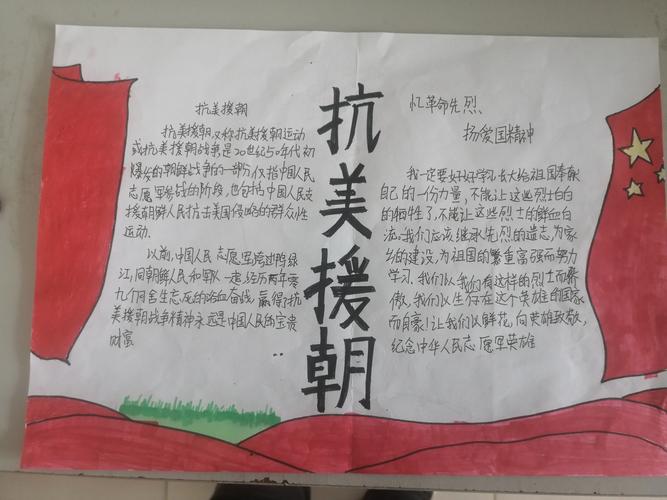 抗美援朝
抗美援朝又称抗美援朝运动
或抗美援朝战争是20世纪50年代初
爆发的朝鲜战争的一部分仅指中国人民
志愿军参战的阶段,也包括中国人民支
援朝鲜人民抗击美国侵略的群众性
运动.
以前,中国人民志愿军跨过鸭绿
江,同朝鲜人民和军队一道经历两年零
九个月舍生忘死的浴血奋战赢得了抗
美援朝战争精神永远是中国人民的宝贵
财富
抗美援朝
忆革命先烈.
扬爱国精神
我一定要好好学习长大给祖国奉献
自己的一份力量,不能让这些烈士白白
的牺牲了,不能让这些烈士的鲜血白
流.我们应该继承先烈的遗志,为家
乡的建设,为祖国的繁重富强而努力
学习.我们以我们有这样的烈士而骄
傲,我们以生存在这个英雄的国家
而自豪!让我们以鲜花,向英雄致敬,
纪念中华人民志愿军英雄